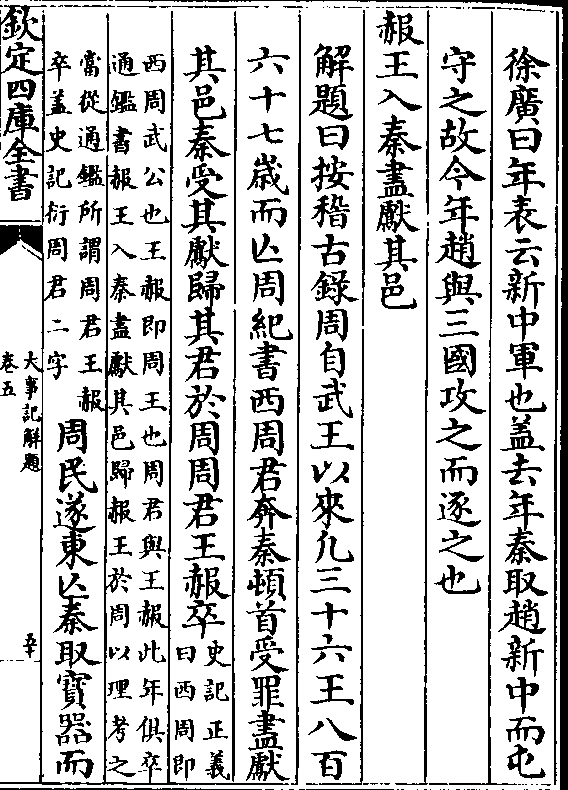 徐廣曰年表云新中軍也蓋去年秦取趙新中而屯
守之故今年趙與三國攻之而逐之也
赧王入秦盡獻其邑
解題曰按稽古錄周自武王以來凡三十六王八百
六十七歲而亾周紀書西周君奔秦頓首受罪盡獻
其邑秦受其獻歸其君於周周君王赧卒
史記正義
曰西周即
西周武公也王赧即周王也周君與王赧此年俱卒
通鑑書赧王入秦盡獻其邑歸赧王於周以理考之
當從通鑑所謂周君王赧
卒蓋史記衍周君二字
周民遂東亾秦取寶器而
欽定四庫全書
大事記解題
卷五
五十